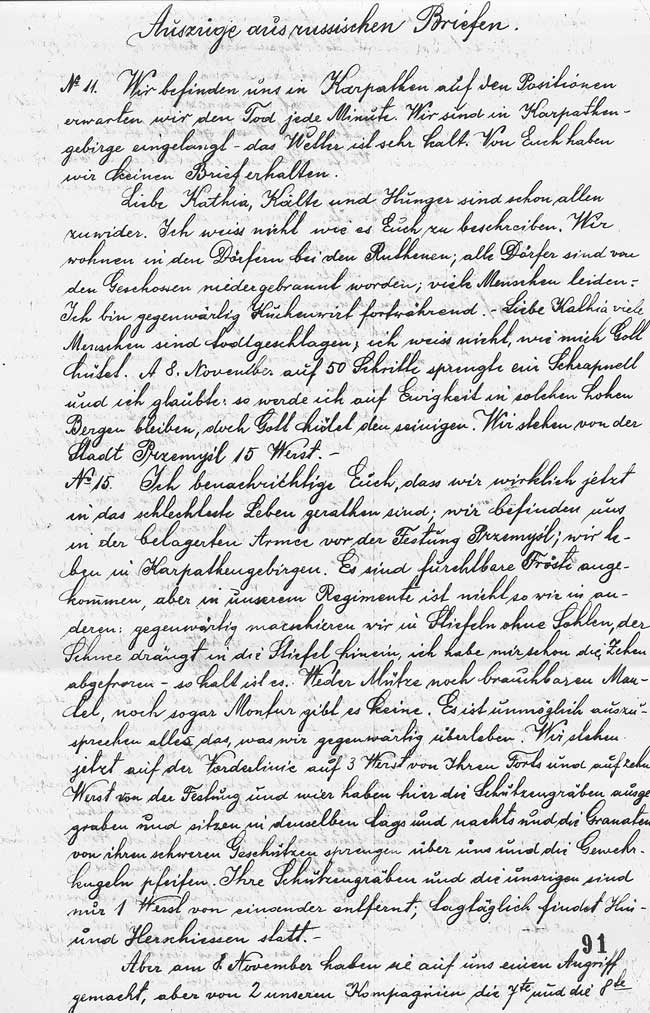 Auszüge aus russischen Briefen.
№ 11. Wir befinden uns in Karpathen auf den Positionen
erwarten wir den Tod jede Minute. Wir sind in Karpathen-
gebirge eingelangt - das Wetter ist sehr kalt. Von Euch haben
wir keinen Brief erhalten.
Liebe Kathia, Kälte und Hunger sind schon allen
zuwider. Ich weiss nicht wie es Euch zu beschreiben. Wir
wohnen in den Dörfern bei den Ruthenen; alle Dörfer sind von
den Geschossen niedergebrannt worden; viele Menschen leiden.-
Ich bin gegenwärtig Küchenwirt fortwährend. - Liebe Kathia viele
Menschen sind todtgeschlagen; ich weiss nicht, wie mich Gott
hütet. A 8. November auf 50 Schritte sprengte ein Schrapnell
und ich glaubte: so werde ich auf Ewigkeit in solchen hohen
Bergen bleiben, doch Gott hütet den seinigen. Wir stehen von der
Stadt Przemyśl 15 Werst. -
№ 15. Ich benachrichtige Euch, dass wir wirklich jetzt
in das schlechteste Leben gerathen sind; wir befinden uns
in der belagerten Armee vor der Festung Przemyśl; wir le-
ben in Karpathengebirgen. Es sind furchtbare Fröste ange-
kommen, aber in unserem Regimente ist nicht so wie in an-
deren: gegenwärtig marschieren wir in Stiefeln ohne Sohlen, der
Schnee drängt in die Stiefel hinein, ich habe mir schon die Zehen
abgefroren - so kalt ist es. Weder Mütze noch brauchbaren Man-
tel, noch sogar Montur gibt es keine. Es ist unmöglich auszu-
sprechen alles das, was wir gegenwärtig überleben. Wir stehen
jetzt auf der Vorderlinie auf 3 Werst von Ihren Forts und auf zehn
Werst von der Festung und wier haben hier die Schützengräben ausge
graben und sitzen in denselben tags und nachts und die Granaten
von ihren schweren Geschützen sprengen über uns und die Gewehr-
kugeln pfeifen. Ihre Schützengräben und die unsrigen sind
nur 1 Werst von einander entfernt; tagtäglich findet Hin-
und Herschiessen statt. -
91
Aber am 8 November haben sie auf uns einen Angriff
gemacht, aber von 2 unseren Kompagnien die 7te und die 8te